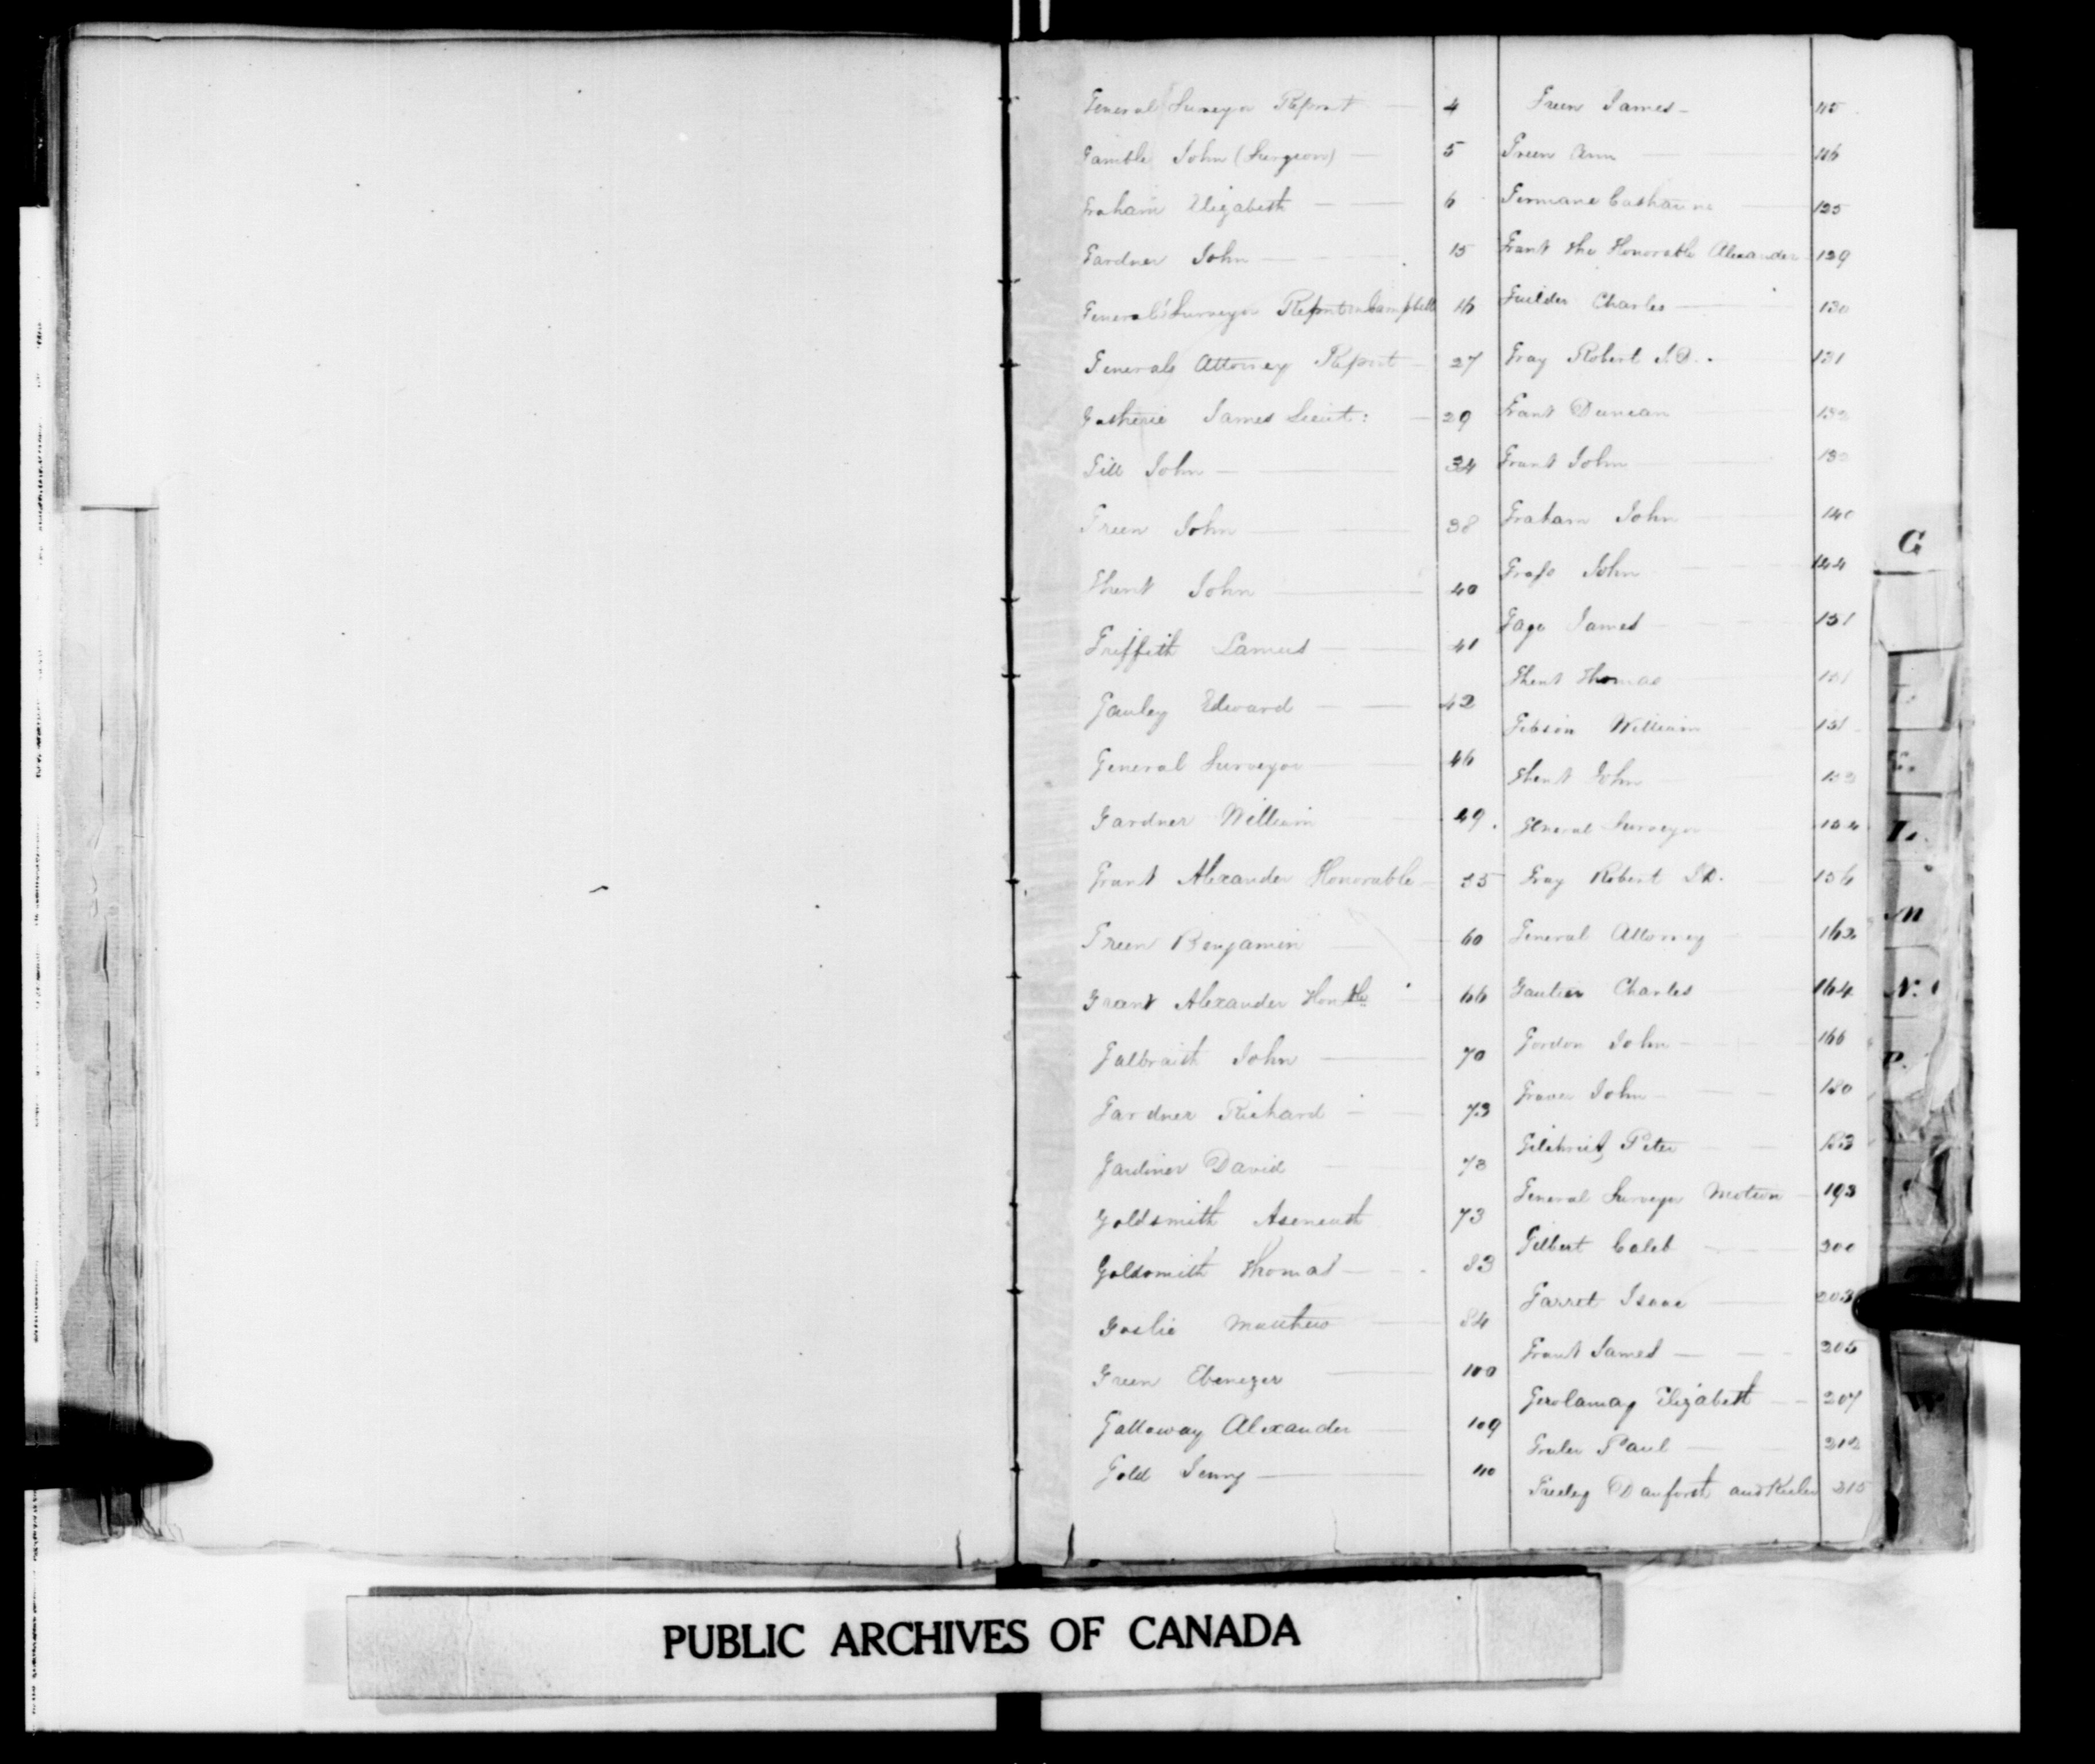 General Surveyor Report 4
Gamble John (Surgeon) 5
Graham Elizabeth 6
Gardner John 15
General Surveyor Report on Campbell 16
Generals Attorney Report 27
James Lieut: 29
Gill John 34
Green John 38
Ghent John 40
Griffith 41
Gauley Edward 42
General Surveyor 46
Gardner William 49
Grant Alexander Honorable 55
Green Benjamin 60
Grant Alexander Honble 66
Galbraith John 70
Gardner Richard 73
Gardiner David 73
Goldsmith 73
Goldsmith Thomas 83
Goslie Matthew 84
Green Ebenezer 100
Galloway Alexander 109
Gold Jenny 110
Green James 115
Green Ann 116
Germane Catharine 125
Grant the Honorable Alexander 129
Guilder Charles 130
Gray Robert I.D. 131
Grant Duncan 132
Grant John
Graham John 140
Grass John 144
Gage James 151
Ghent Thomas 151
Gibson William 151
Ghent John
General Surveyor 154
Gray Robert I.D. 156
General Attorney 162
Gautier Charles 164
Gordon John 166
Graves John 180
Gilchrist Peter 183
General Surveyor Motion 193
Gilbert Caleb 200
Garret Isaac 203
Grant James 205
Elizabeth 207
Paul 212
Danforth and Keeler 215
G
L.
M
N.
P.
W
PUBLIC ARCHIVES OF CANADA